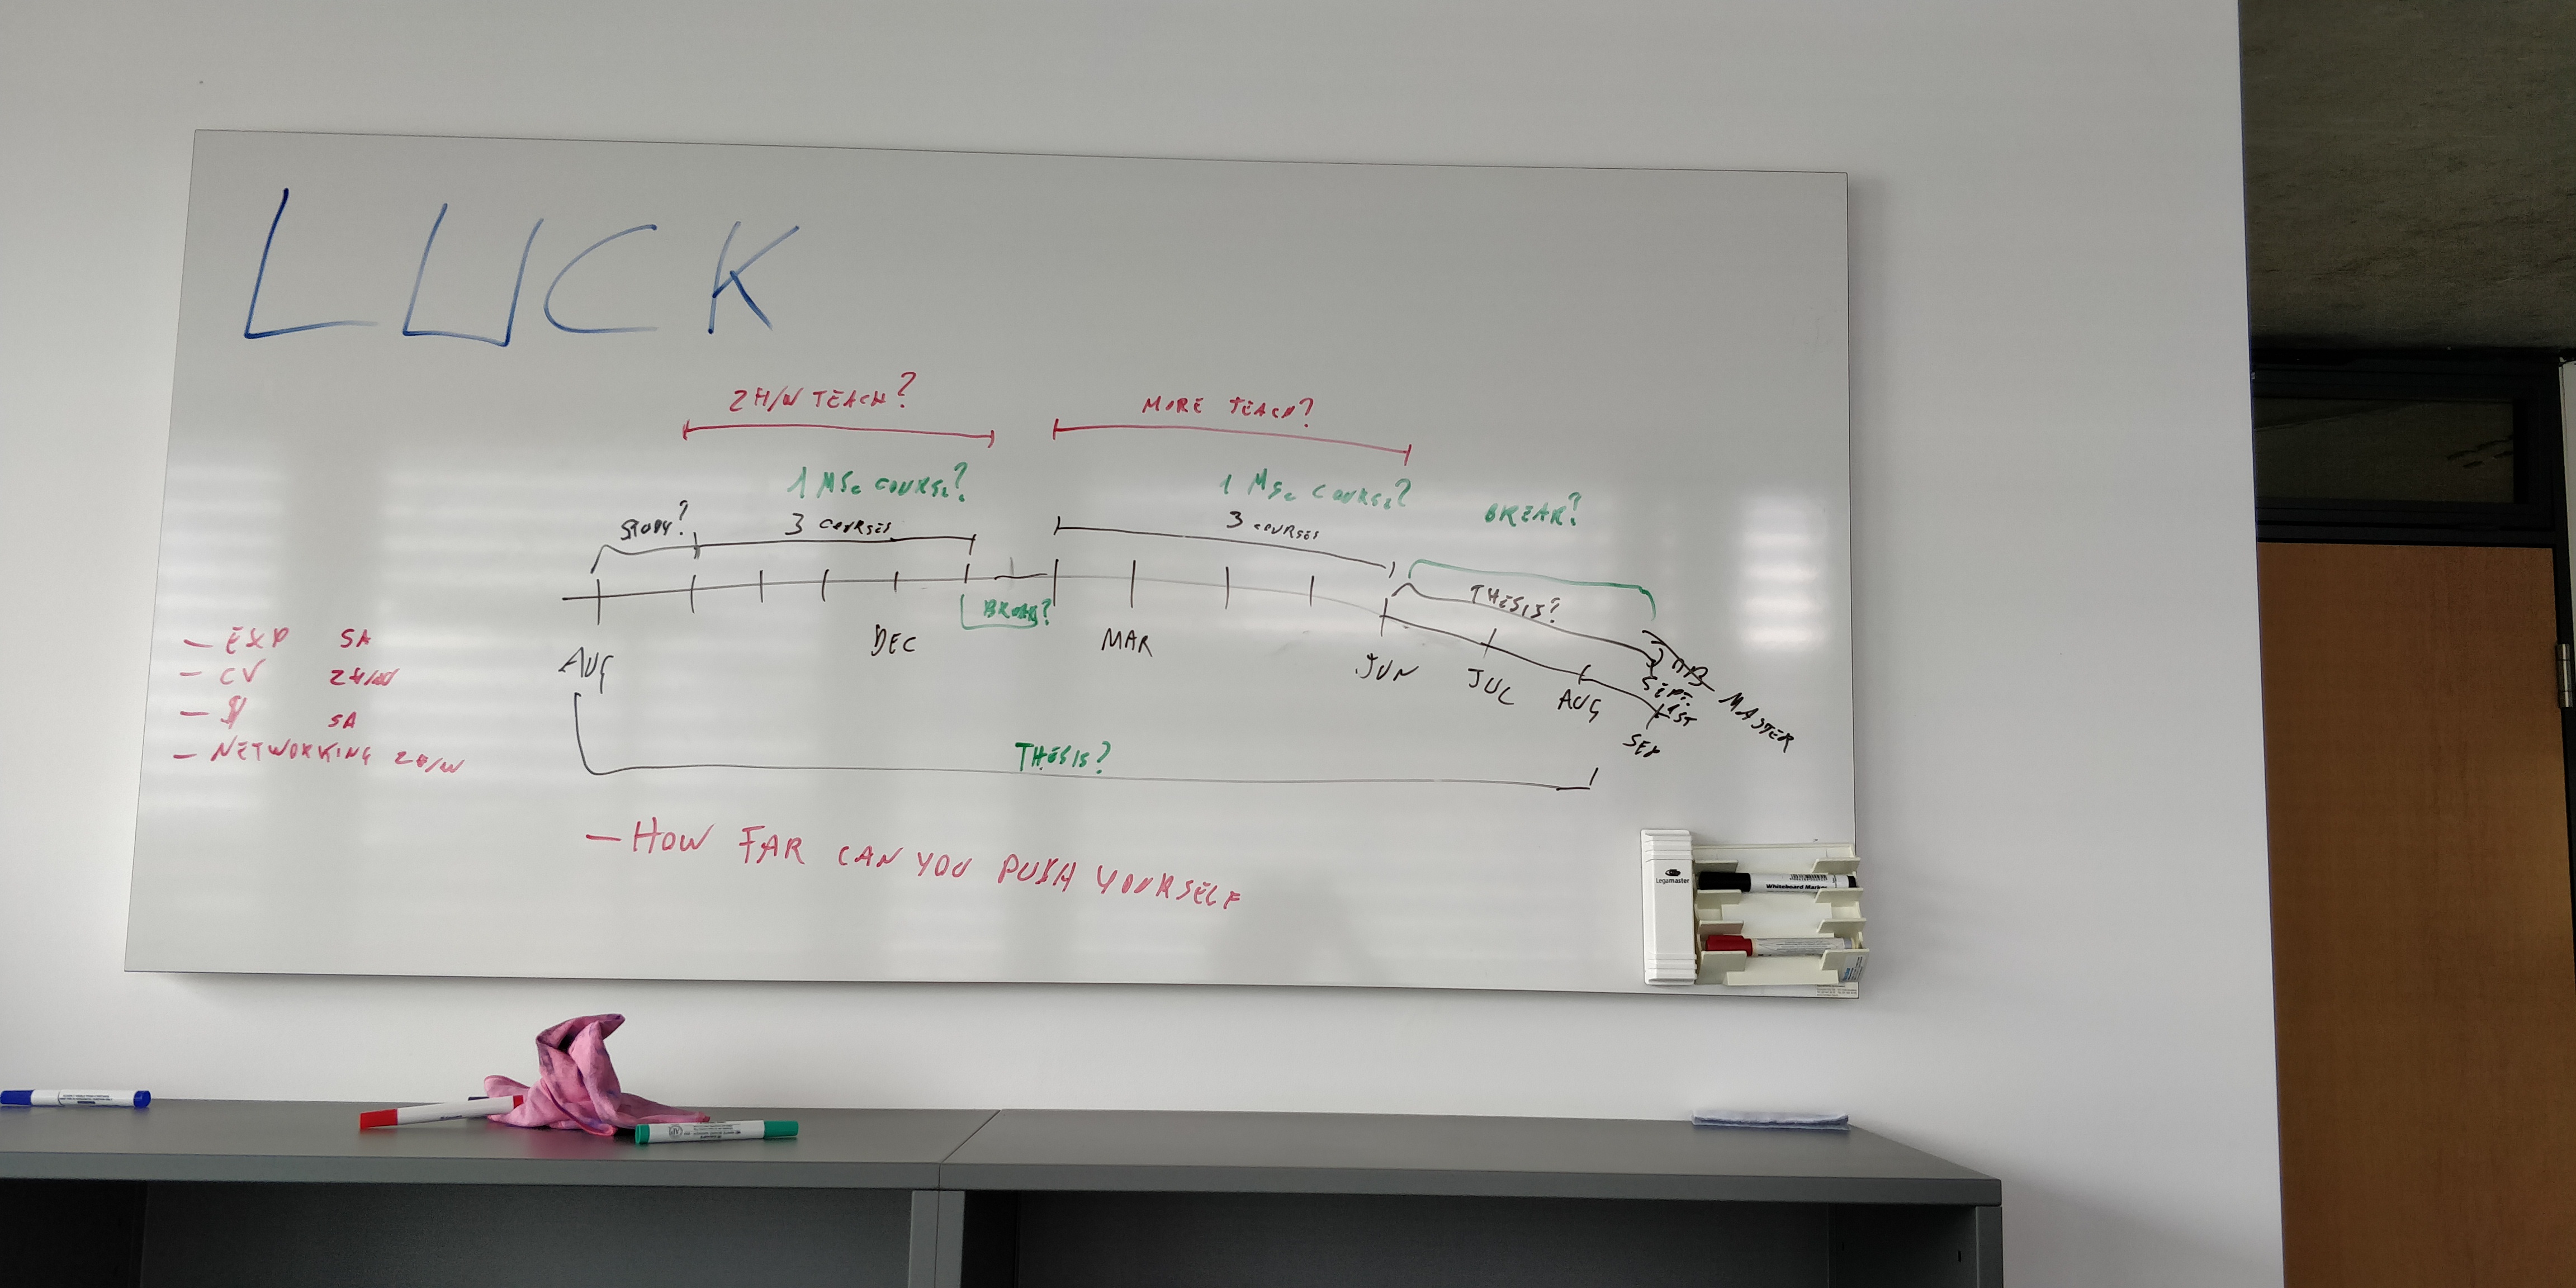 LUCK
2H/W TEACH?
MORE TEACH?
1 MSc COURSE?
1 MSc COURSE?
BREAK?
STUDY?
3 COURSES
3 COURSES
THESIS?
BREAK?
AUG
DEC
MAR
JUN
JUL
AUG
SEPT.
1ST
SEP
MASTER
- EXP SA
- CV 2H/W
- $ SA
- NETWORKING 2H/W
THESIS?
- HOW FAR CAN YOU PUSH YOURSELF
Legamaster
Whiteboard Marker